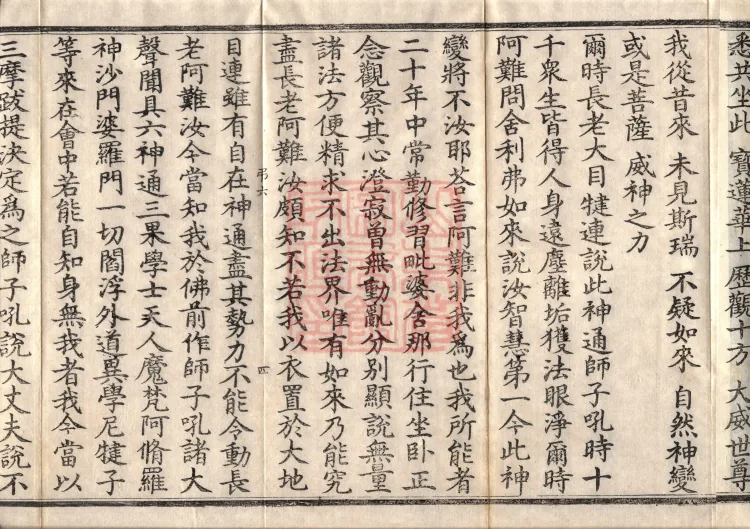 悉共坐此 寶蓮華上 歷觀十方 大威世尊
我從昔來 未見斯瑞 不疑如來 自然神變
或是菩薩 威神之力
爾時長老大目犍連說此神通師子吼時十
千衆生皆得人身遠塵離垢獲法眼淨爾時
阿難問舍利弗如來說汝智慧第一今此神
變將不汝耶荅言阿難非我爲也我所能者
二十年中常勤修習毗婆舍那行住坐卧正
念觀察其心澄寂曾無動亂分別顯說無量
諸法方便精求不出法界唯有如來乃能究
盡長老阿難汝頗知不若我以衣置於大地
弔六 四
目連雖有自在神通盡其勢力不能令動長
老阿難汝今當知我於佛前作師子吼諸大
聲聞具六神通三果學士天人魔梵阿脩羅
神沙門婆羅門一切閻浮外道異學尼犍子
等來在會中若能自知身無我者我今當以
三摩跋提決定爲之師子吼說大丈夫說不